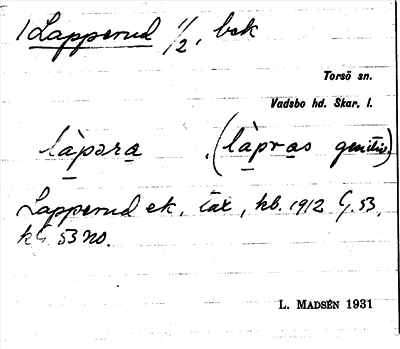 Lapperud 1/2, bsk
Torsö sn.
Vadsbo hd. Skar. l.
làpəra (làpras genitiv)
Lapperud ek. tax, kb. 1912 G. 53,
kG 53 NO.
L. MADSÉN 1931